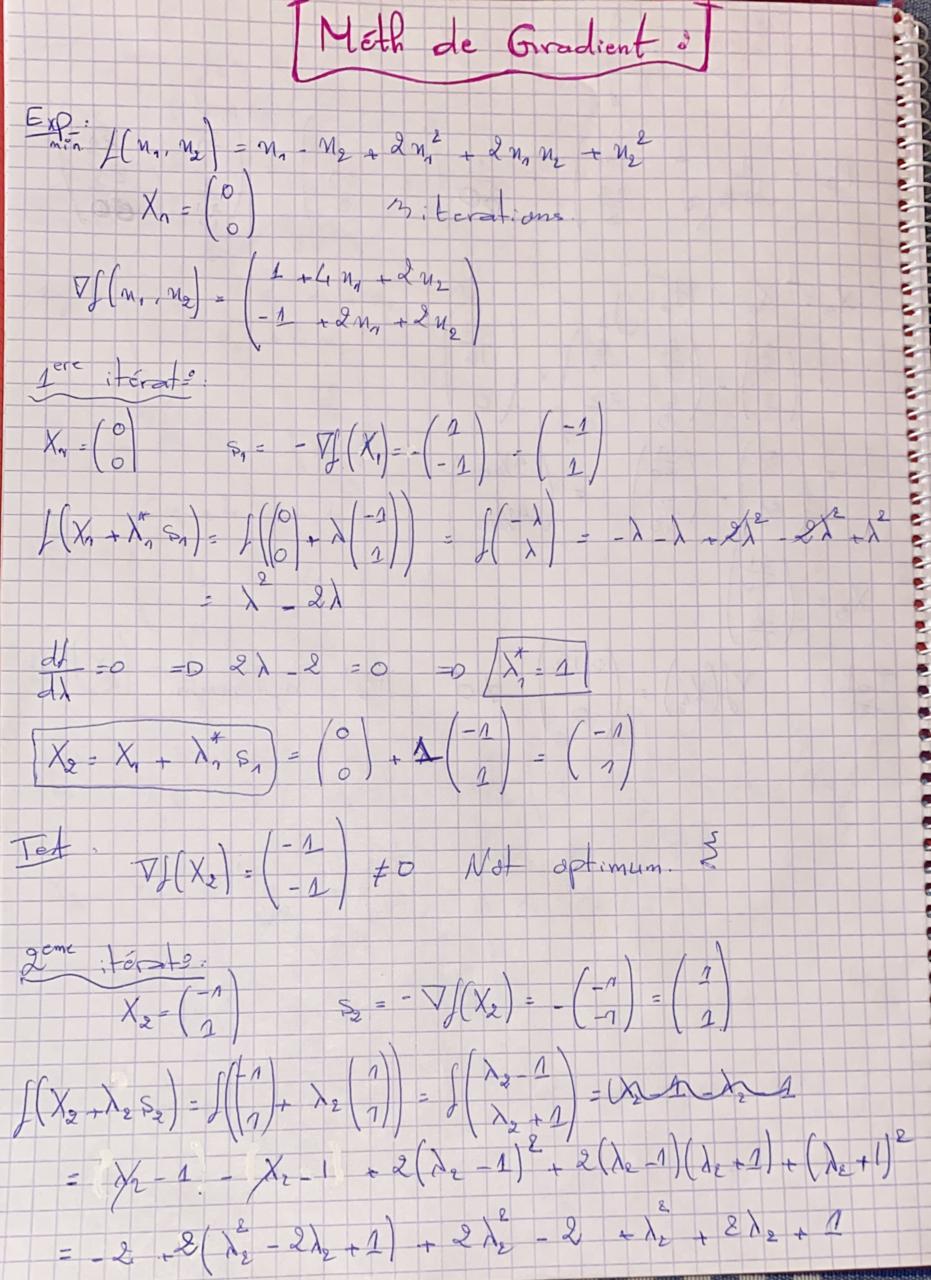 Méth de Gradient :
Exp:
min f(x₁, x₂) = x₁ - x₂ + 2x₁² + 2x₁x₂ + x₂²
X₁ = (0 0) 3 iterations
∇f(x₁, x₂) = (1 + 4x₁ + 2x₂ -1 + 2x₁ + 2x₂)
1ere itérat°:
X₁ = (0 0) s₁ = - ∇f(X₁) = -(1 -1) = (-1 1)
f(X₁ + λ₁* s₁) = f((0 0) + λ(-1 1)) = f(-λ λ) = -λ - λ + 2λ² - 2λ² + λ²
= λ² - 2λ
df/dλ = 0 => 2λ - 2 = 0 => λ₁* = 1
X₂ = X₁ + λ₁* s₁ = (0 0) + 1(-1 1) = (-1 1)
Test. ∇f(X₂) = (-1 -1) ≠ 0 Not optimum. }
2eme itérat°:
X₂ = (-1 1) s₂ = - ∇f(X₂) = -(-1 -1) = (1 1)
f(X₂ + λ₂ s₂) = f((-1 1) + λ₂(1 1)) = f(λ₂ - 1 λ₂ + 1) =
= λ₂ - 1 - λ₂ - 1 + 2(λ₂ - 1)² + 2(λ₂ - 1)(λ₂ + 1) + (λ₂ + 1)²
= -2 + 2(λ₂² - 2λ₂ + 1) + 2λ₂² - 2 + λ₂² + 2λ₂ + 1